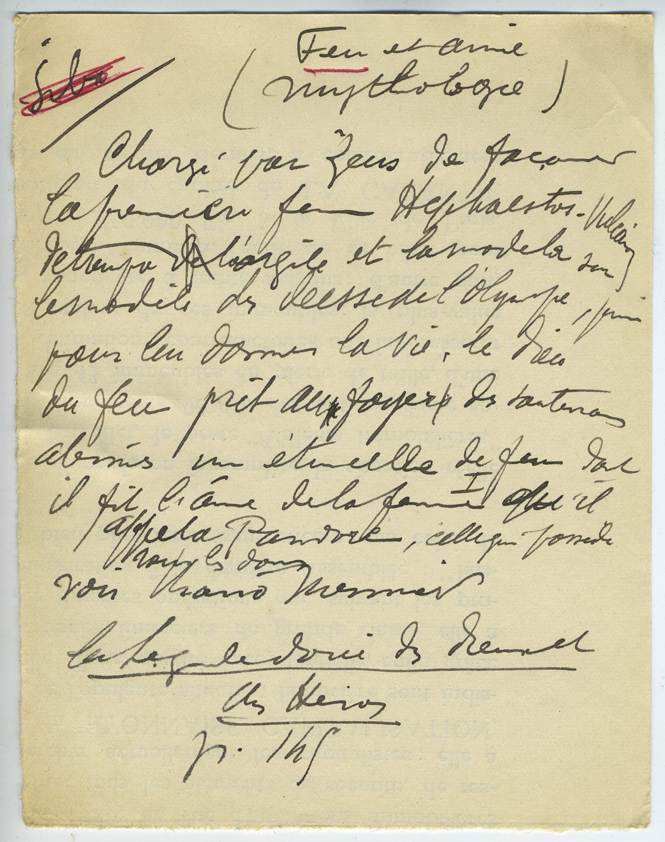 Feu et âme
(mythologie)
Chargé par Zeus de façonner
la première femme Hephaestos-Vulcain
détrempa de l'argile et la modela sur
le modèle des déesses de l'Olympe, puis
pour leu donner la vie, le dieu
du feu prit au foyer des souterrains
abîmes une étincelle de feu dont
il fit l'âme de la femme qu'il
appela Pandore, celle qui possède
tous les dons
voir Mario Meunier
La Légende dorée des Dieux et
des Héros
p.